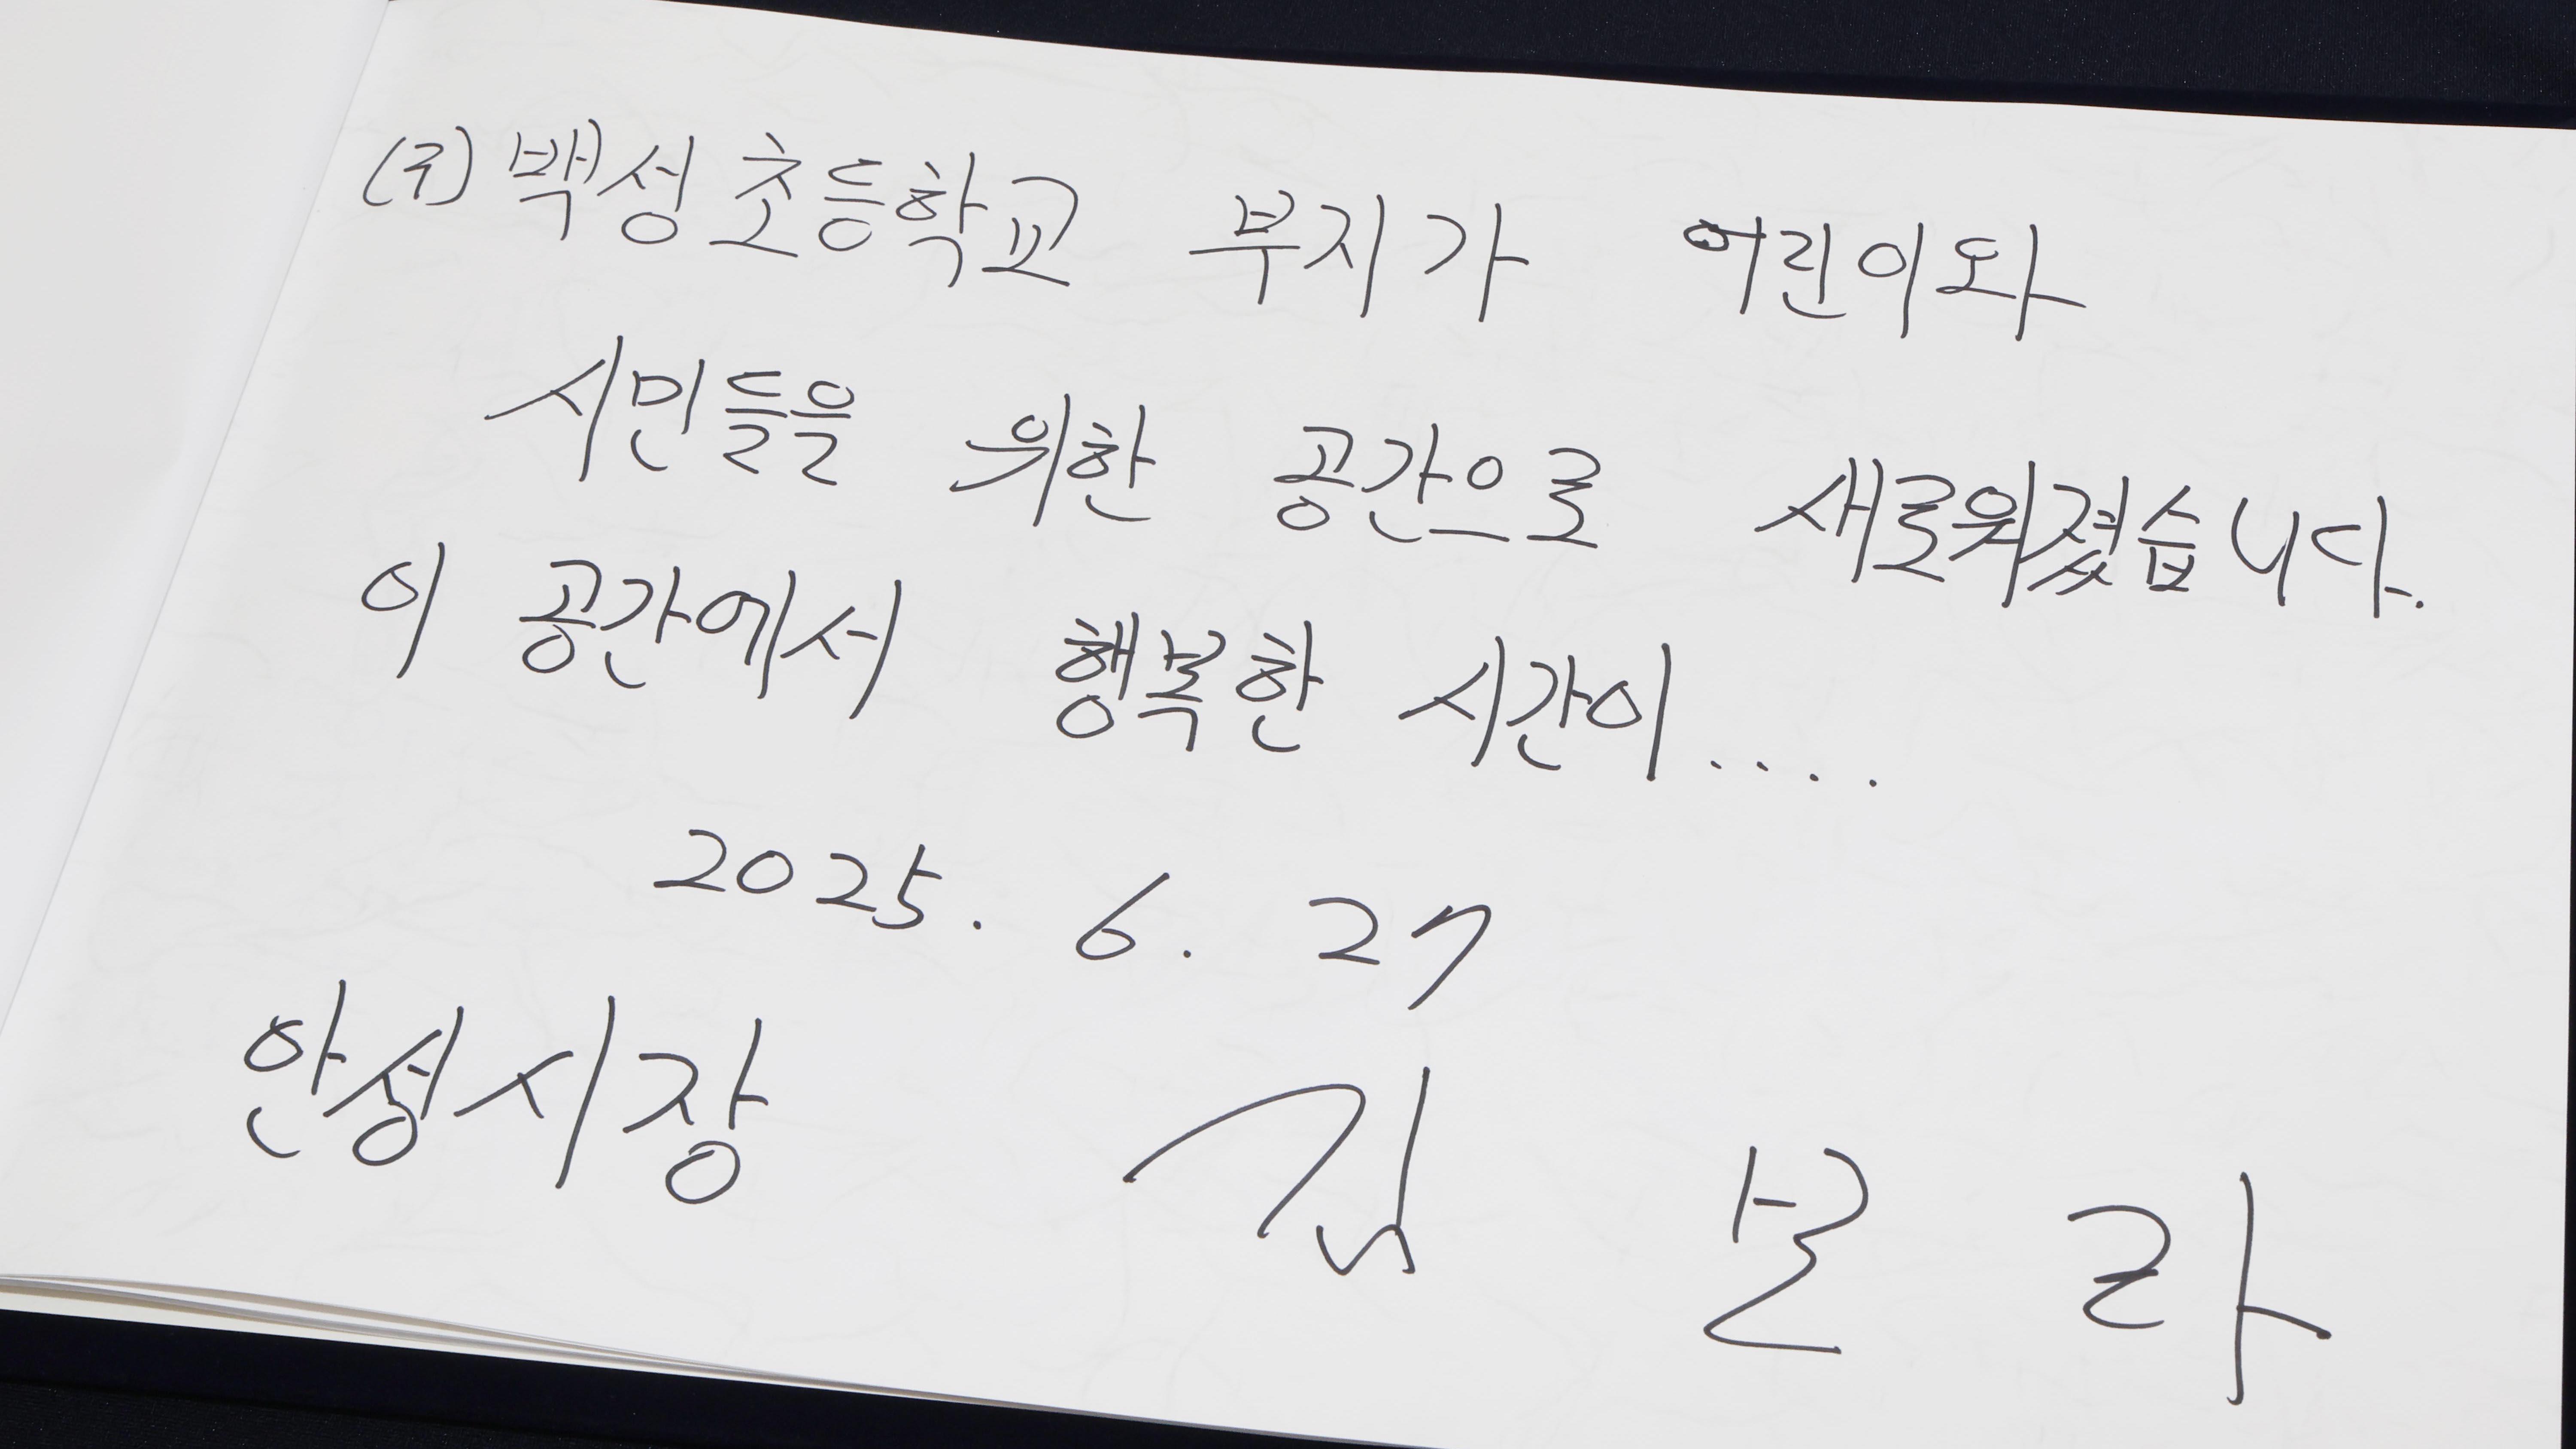 (구) 백성초등학교 부지가 어린이와
시민들을 위한 공간으로 새로워졌습니다.
이 공간에서 행복한 시간이....
2025. 6. 27
안성시장 김 보 라